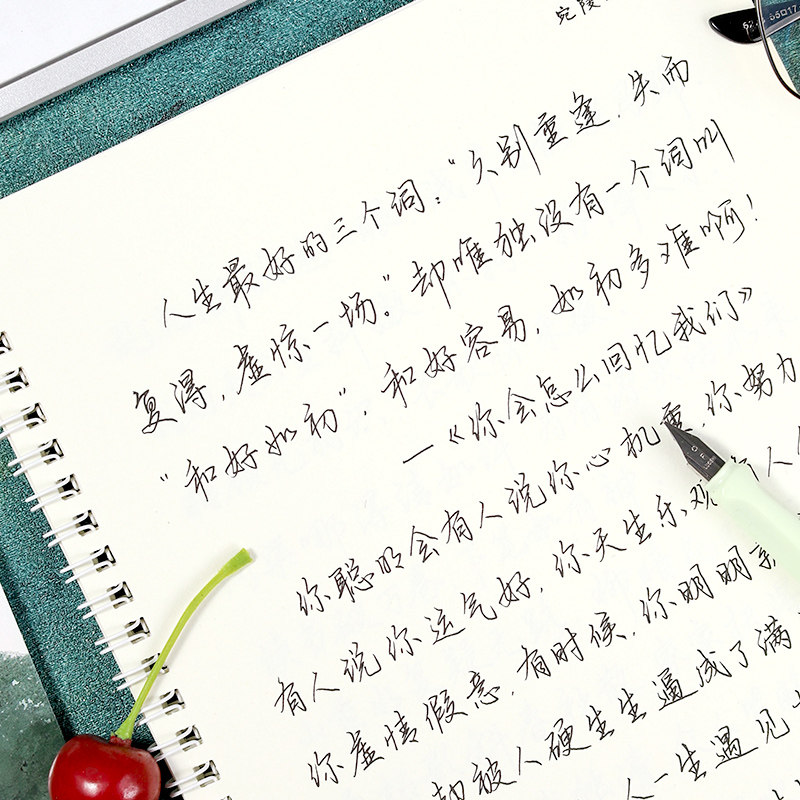 宛陵
人生最好的三个词：“久别重逢，失而
复得，虚惊一场。”却唯独没有一个词叫
“和好如初”，和好容易，如初多难啊！
—《你会怎么回忆我们》
你聪明会有人说你心机重，你努力
有人说你运气好，你天生乐观 有人
你虚情假意，有时候，你明明
却被人硬生生逼成了满
人一生遇见